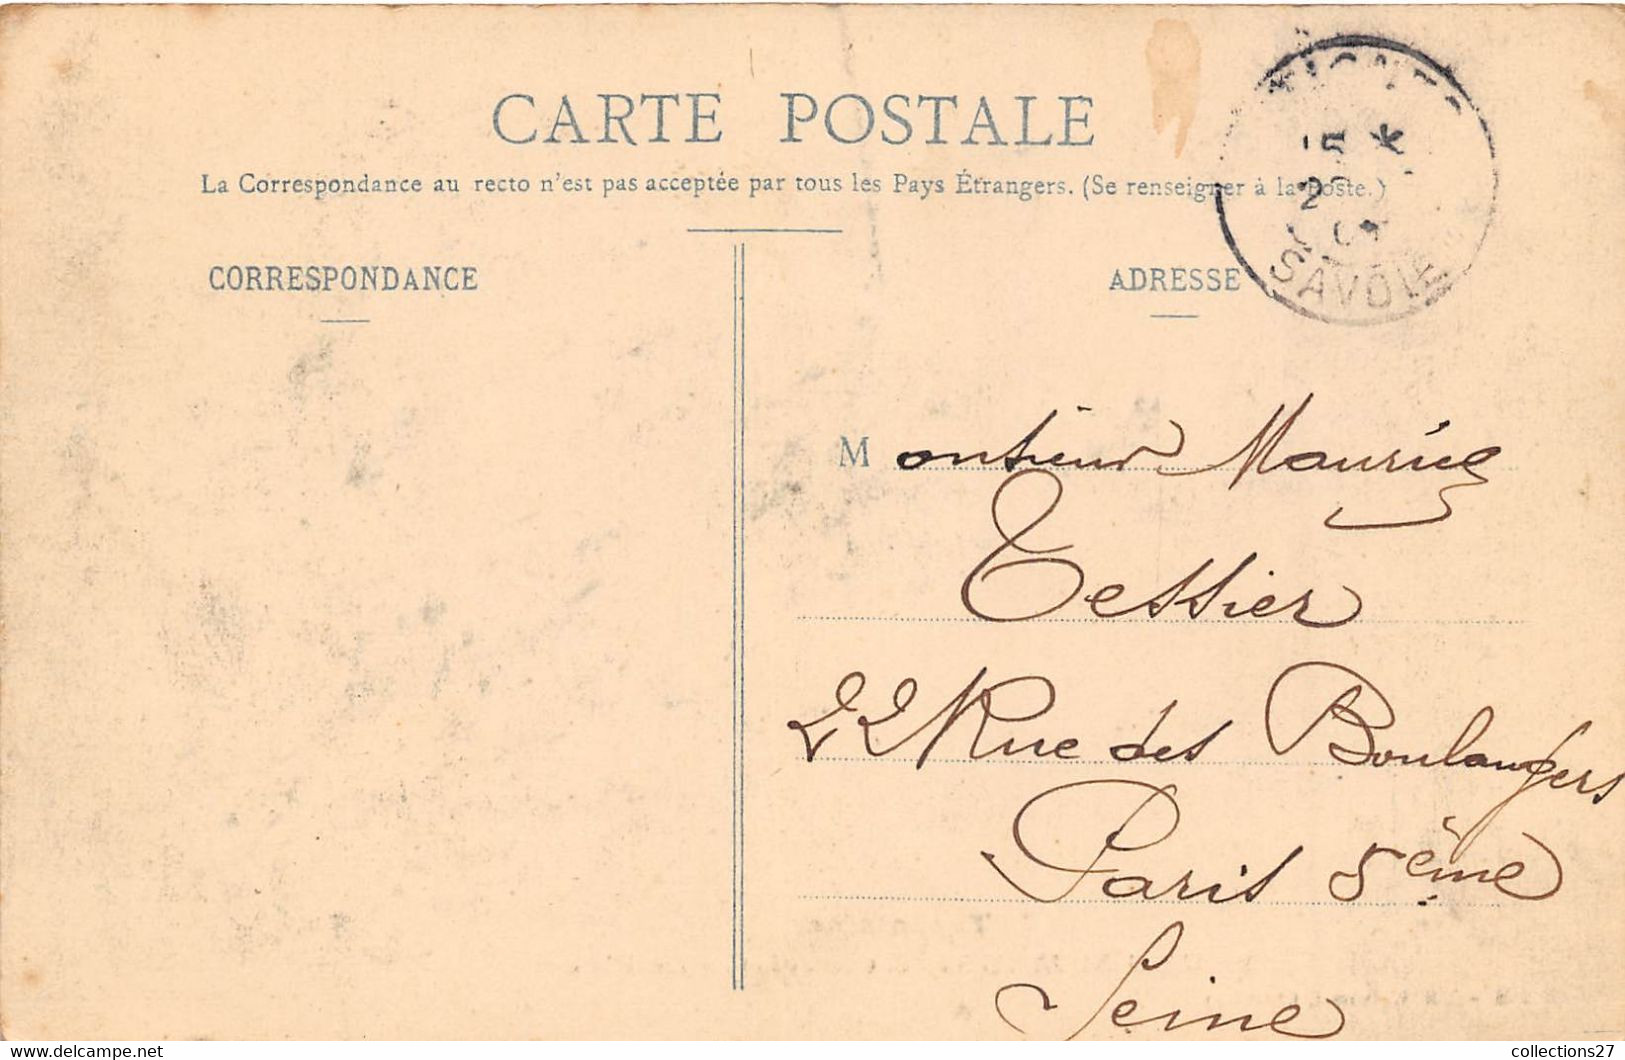 CARTE POSTALE
La Correspondance au recto n'est pas acceptée par tous les Pays Étrangers. (Se renseigner à la Poste.)
CORRESPONDANCE
ADRESSE
TIGNES
SAVOIE
Monsieur Maurice
Tessier
22 Rue des Boulangers
Paris 5ème
Seine
collections27